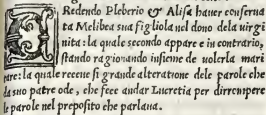 CRedendo Pleberio & Alisa hauer conserua
ta Melibea sua figliola nel dono dela uirgi
nita: la quale secondo appare e in contrario,
stando ragionando insieme de uolerla mari
tare: la quale receue si grande alteratione dele parole che
da suo patre ode, che fece andar Lucretia per dirrompere
le parole nel preposito che parlaua.